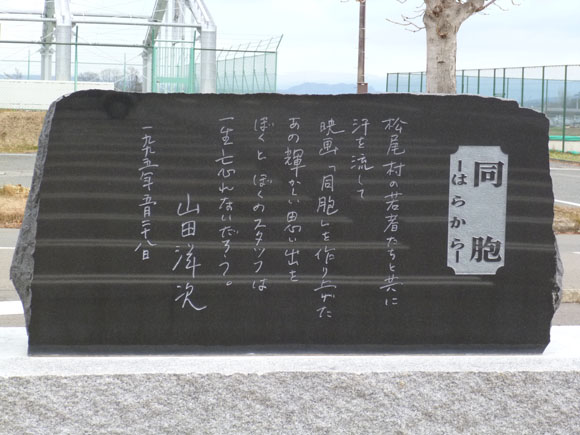 同胞
－はらから－
松尾村の若者たちと共に
汗を流して
映画「同胞」を作り上げた
あの輝かしい思い出を
ぼくと ぼくのスタッフは
一生忘れないだろう。
山田洋次
一九九五年五月二十八日